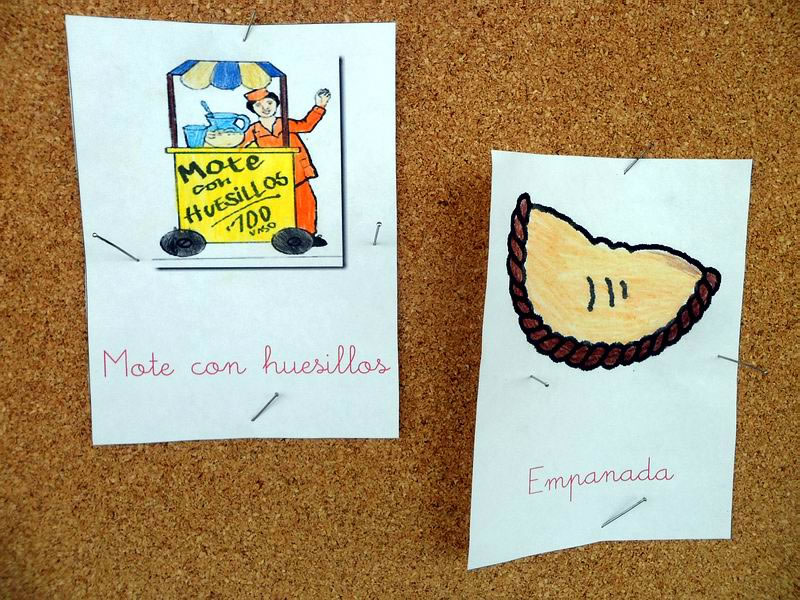 Mote
con
HUESILLOS
$100
VASO
Mote con huesillos
Empanada